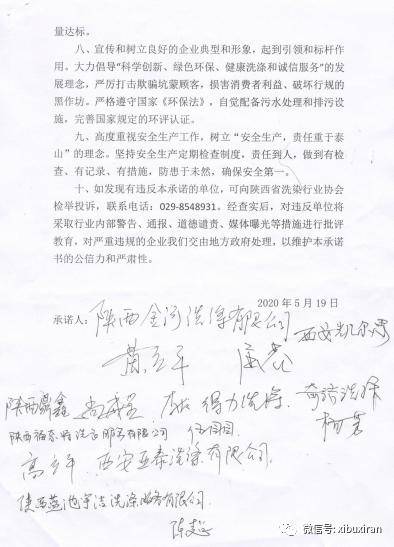 量达标。
八、宣传和树立良好的企业典型和形象，起到引领和标杆作
用。大力倡导“科学创新、绿色环保、健康洗涤和诚信服务”的发
展理念，严厉打击欺骗坑蒙顾客，损害消费者利益、破坏行规的
黑作坊。严格遵守国家《环保法》，自觉配备污水处理和排污设
施，完善国家规定的环评认证。
九、高度重视安全生产工作，树立“安全生产，责任重于泰
山”的理念。坚持安全生产定期检查制度，责任到人，做到有检
查、有记录、有措施，防患于未然，确保安全第一。
十、如发现有违反本承诺的单位，可向陕西省洗染行业协会
检举投诉，联系电话：029-8548931。经查实后，对违反单位将
采取行业内部警告、通报、道德谴责、媒体曝光等措施进行批评
教育，对严重违规的企业我们交由地方政府处理，以维护本承诺
书的公信力和严肃性。
2020年5月19日
承诺人：陕西金河洗涤有限公司 西安凯尔
陕西鼎鑫 得力洗涤 奇洁洗涤
服务有限公司
西安亚泰洗涤有限公司
陕西蓝池宇洁洗涤服务有限公司
微信号: xibuxiran